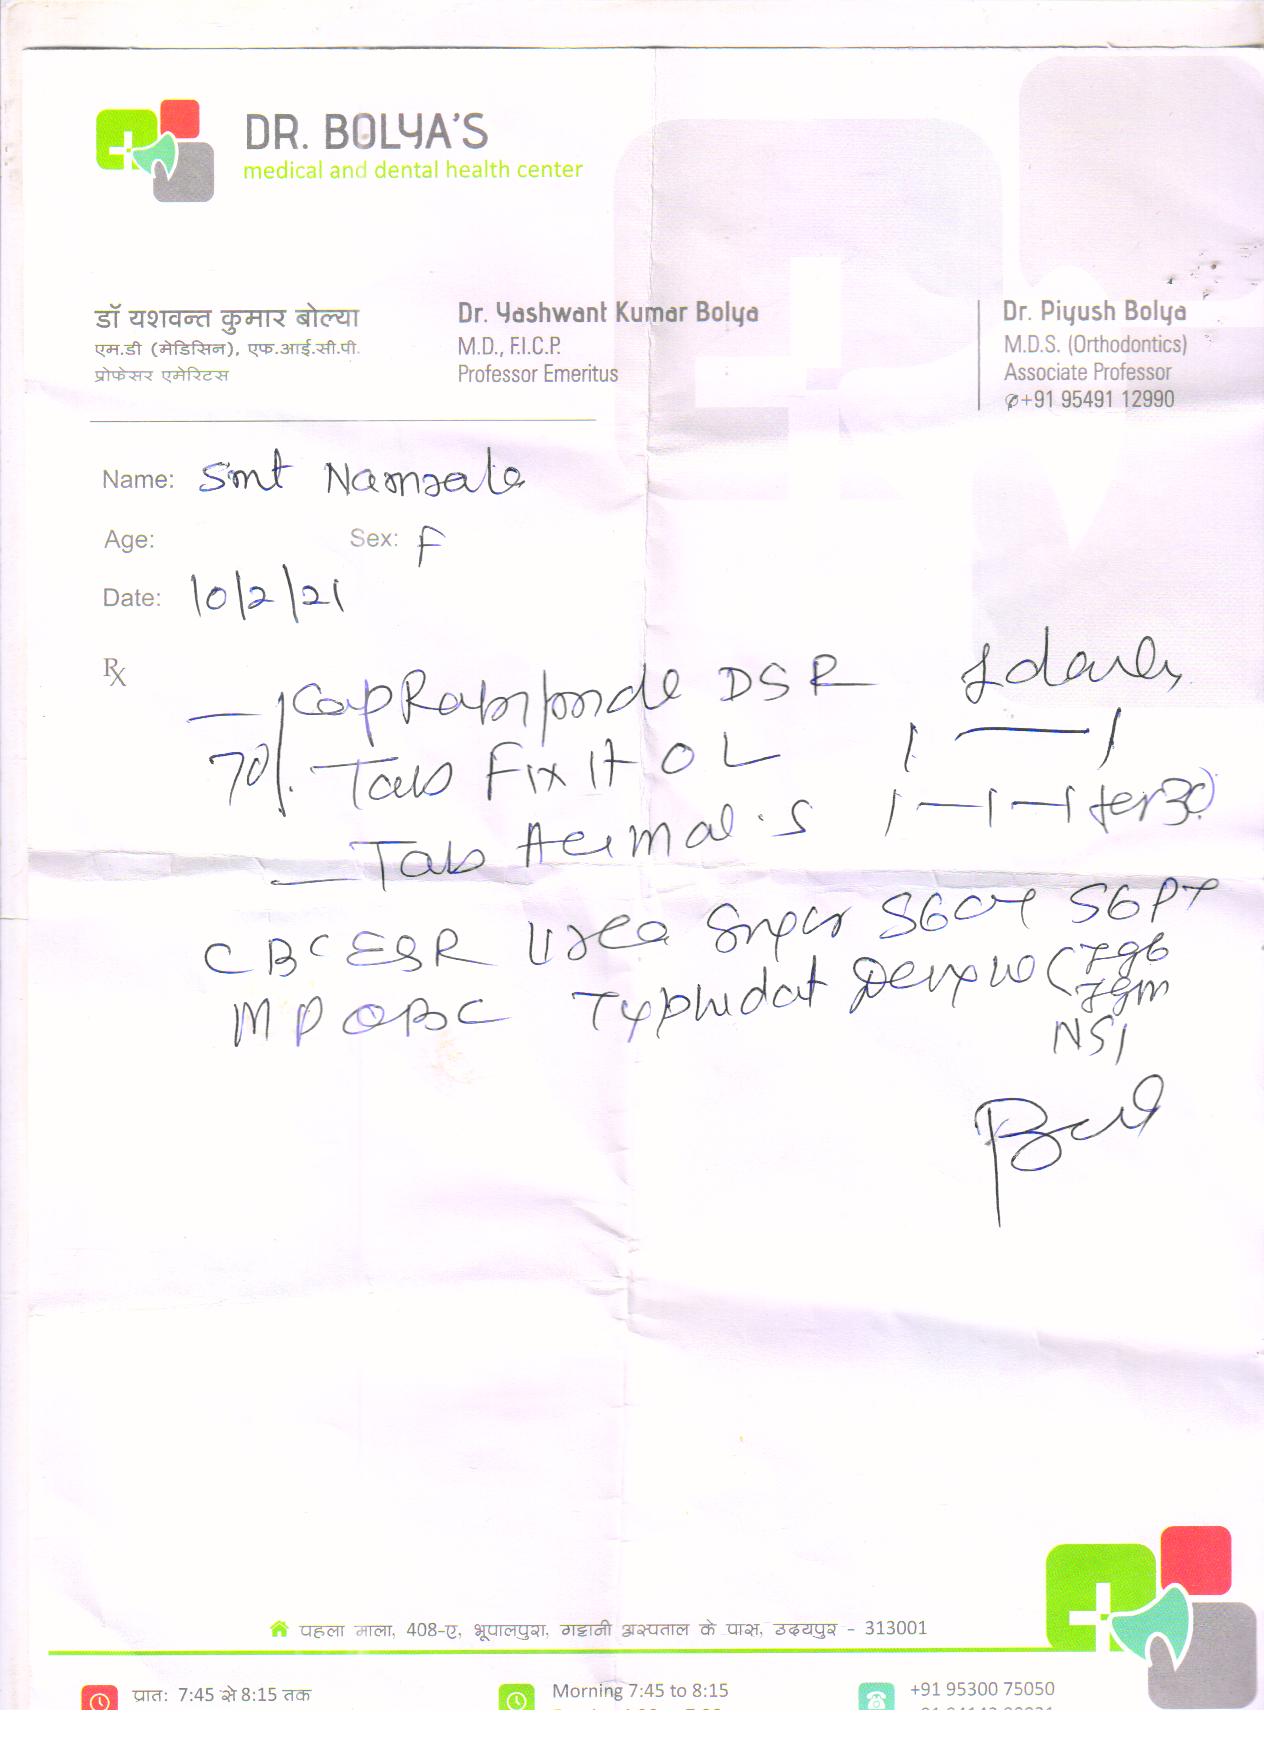 DR. BOLYA'S
medical and dental health center
डॉ यशवन्त कुमार बोल्या
एम.डी (मेडिसिन), एफ.आई.सी.पी.
प्रोफेसर एमेरिटस
Dr. Yashwant Kumar Bolya
M.D., F.I.C.P.
Professor Emeritus
Dr. Piyush Bolya
M.D.S. (Orthodontics)
Associate Professor
+91 95491 12990
Name: Smt
Age: Sex: F
Date: 10/2/21
Rx
Cap DSR 1 daily
Tab Fix It OL 1 — 1
Tab 1 — 1 — 1
CBC ESR Urea SGOT SGPT
MP QBC Typhidot
NS1
पहला माला, 408-ए, भूपालपुरा, गट्टानी अस्पताल के पास, उदयपुर - 313001
प्रात: 7:45 से 8:15 तक
Morning 7:45 to 8:15
+91 95300 75050